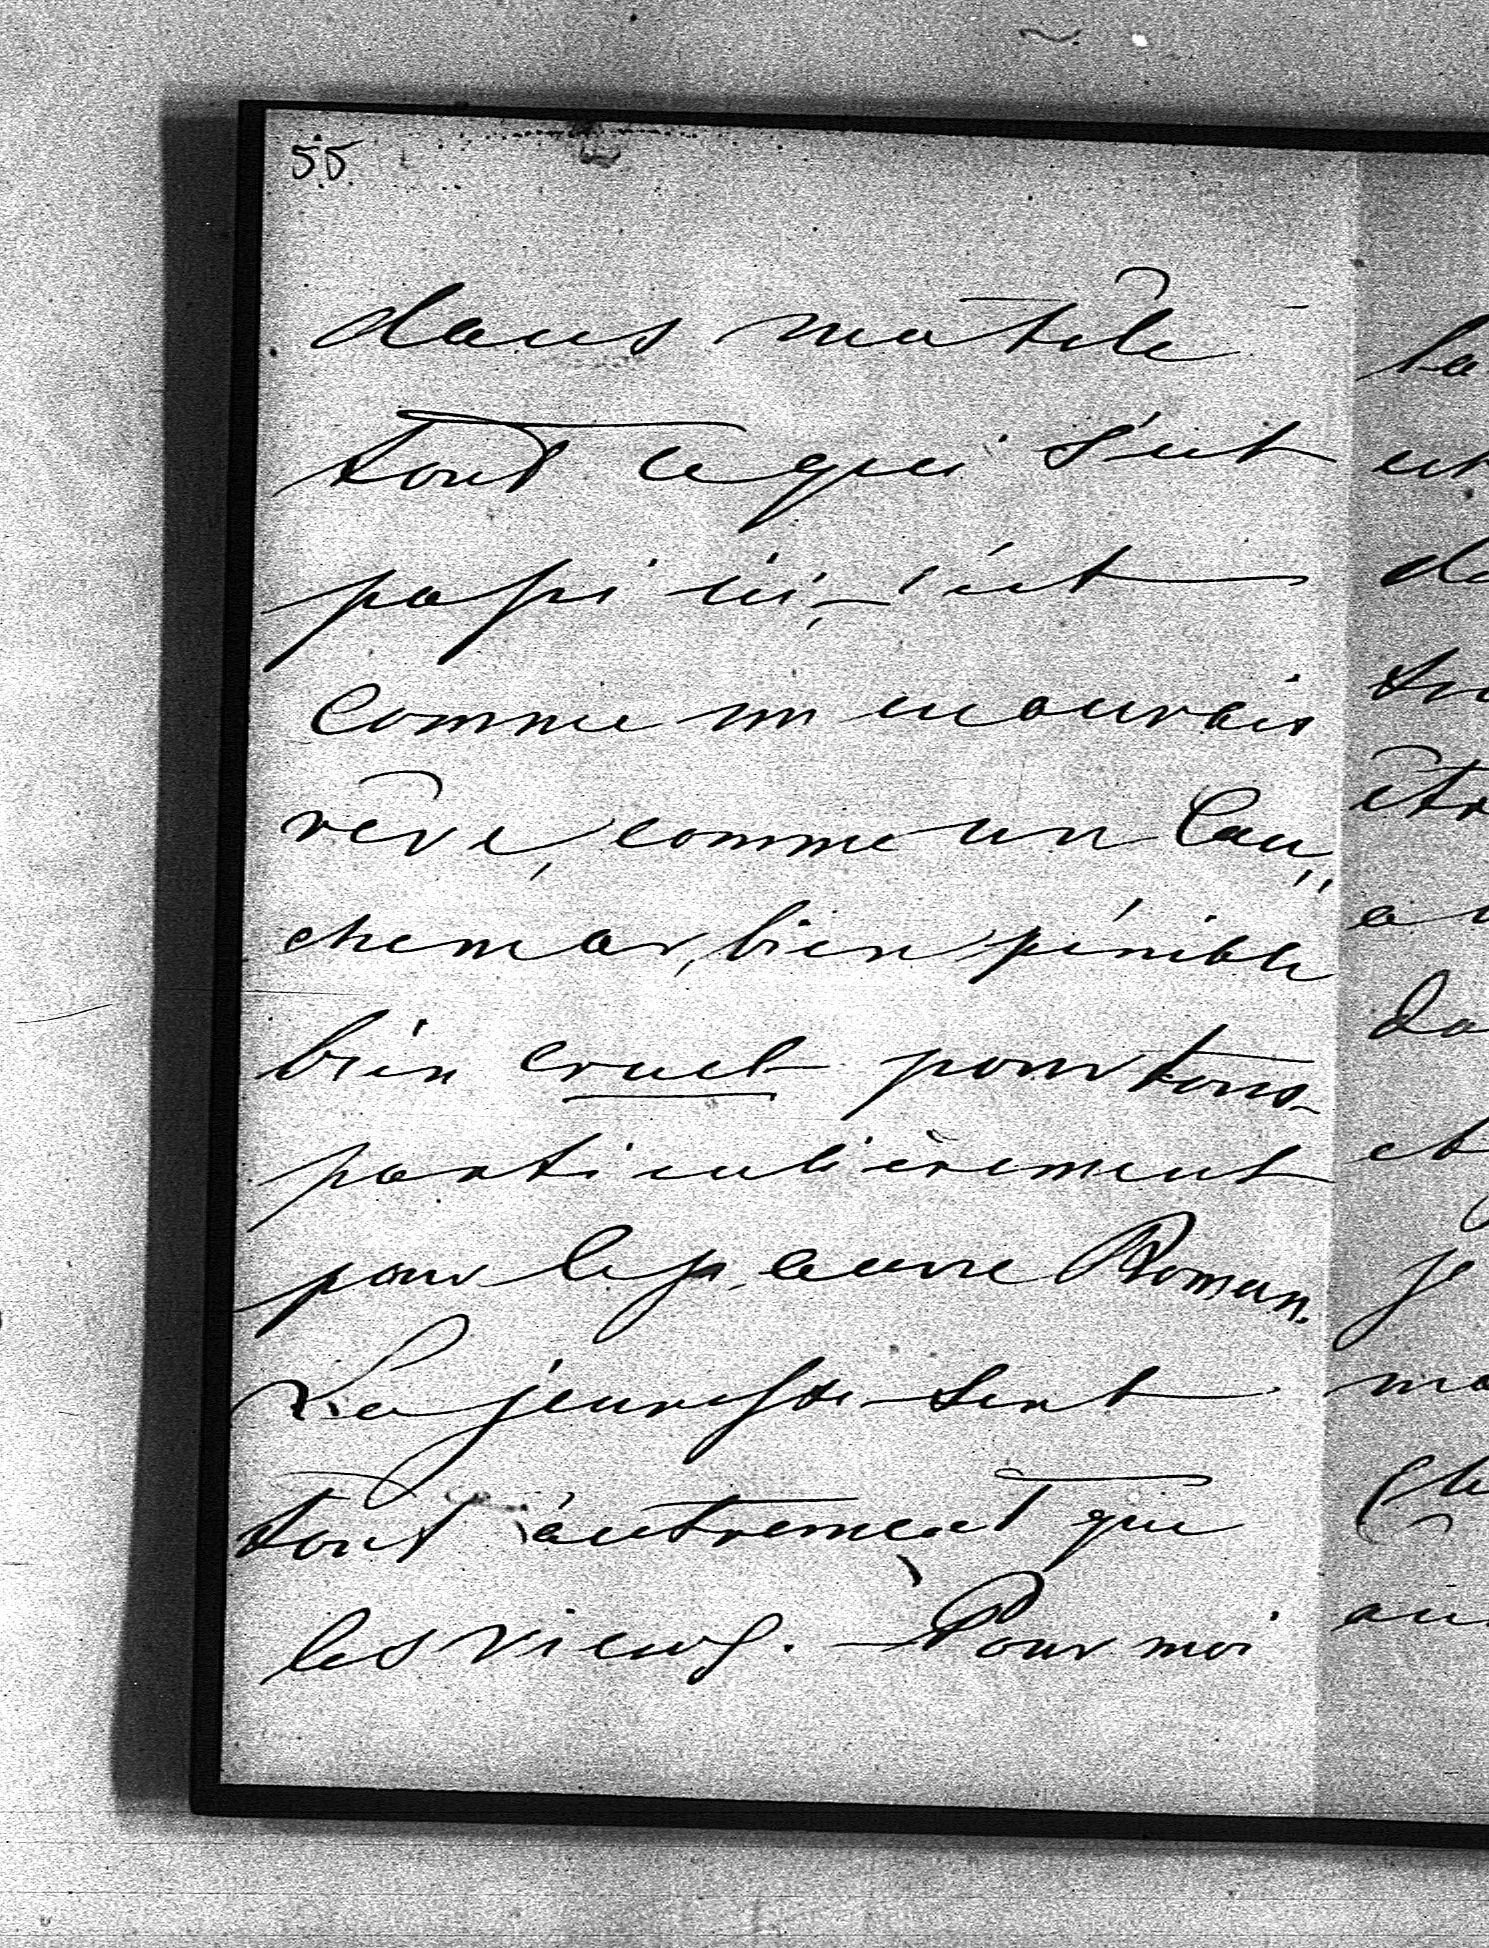 55
dans ma tête
tout ce qui s'est
passé ici, - c'est
comme un mauvais
rêve, comme un Cau„
chemar, bien pénible
bien cruel pour tous
particulièrement
pour le pauvre Roman.
La jeunesse sent
tout autrement que
les vieux. - Pour moi